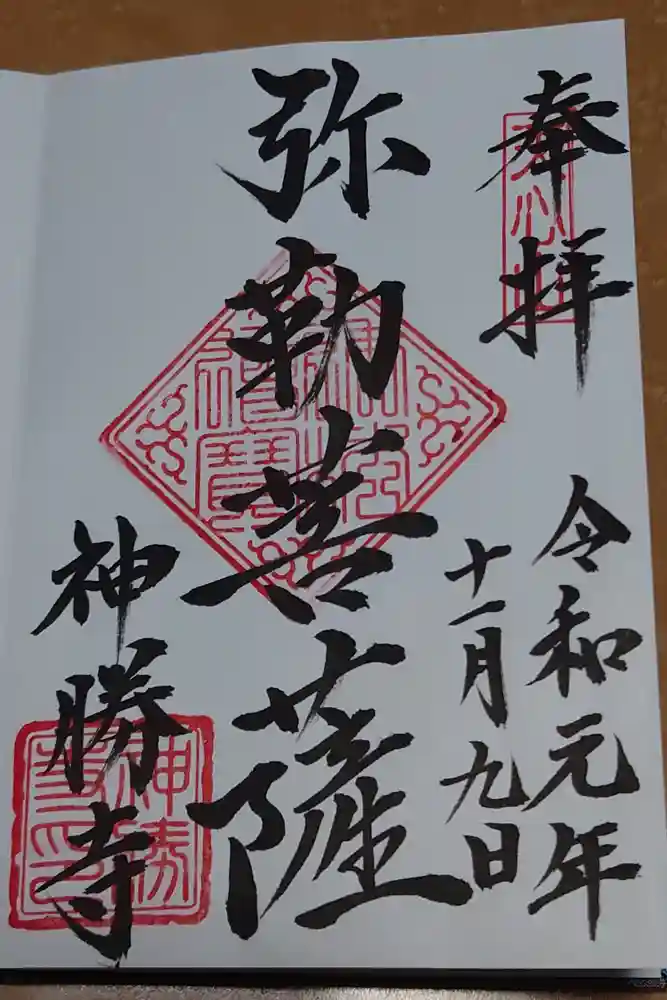 奉拝
令和元年
十一月九日
弥勒菩薩
神勝寺
神勝
寺印